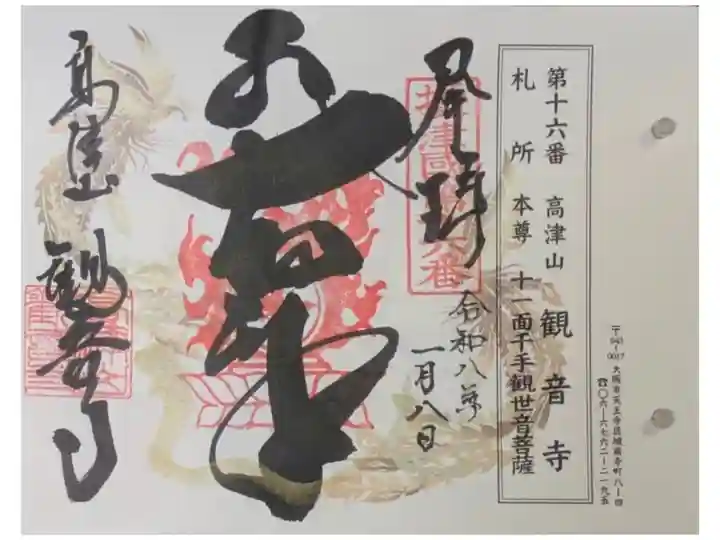 第十六番 高津山 観音寺
札所本尊 十一面千手観世音菩薩
〒543-0017 大阪市天王寺区城南寺町八-四
☎〇六-六七六二-二一九五
奉拝
令和八年
一月八日
高津山 観音寺